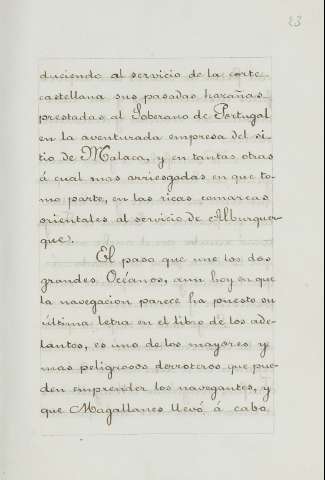 23
duciendo al servicio de la corte
castellana sus pasadas hazañas
prestadas al Soberano de Portugal
en la aventurada empresa del si-
tio de Malaca, y en tantas otras
á cual mas arriesgadas en que to-
mo parte, en las ricas comarcas
orientales al servicio de Alburquer-
que).
El paso que une los dos
grandes Océanos, aun hoy en que
la navegacion parece ha puesto su
última letra en el libro de los ade-
lantos, es uno de los mayores y
mas peligrosos derroteros que pue-
den emprender los navegantes, y
que Magallanes llevó á cabo